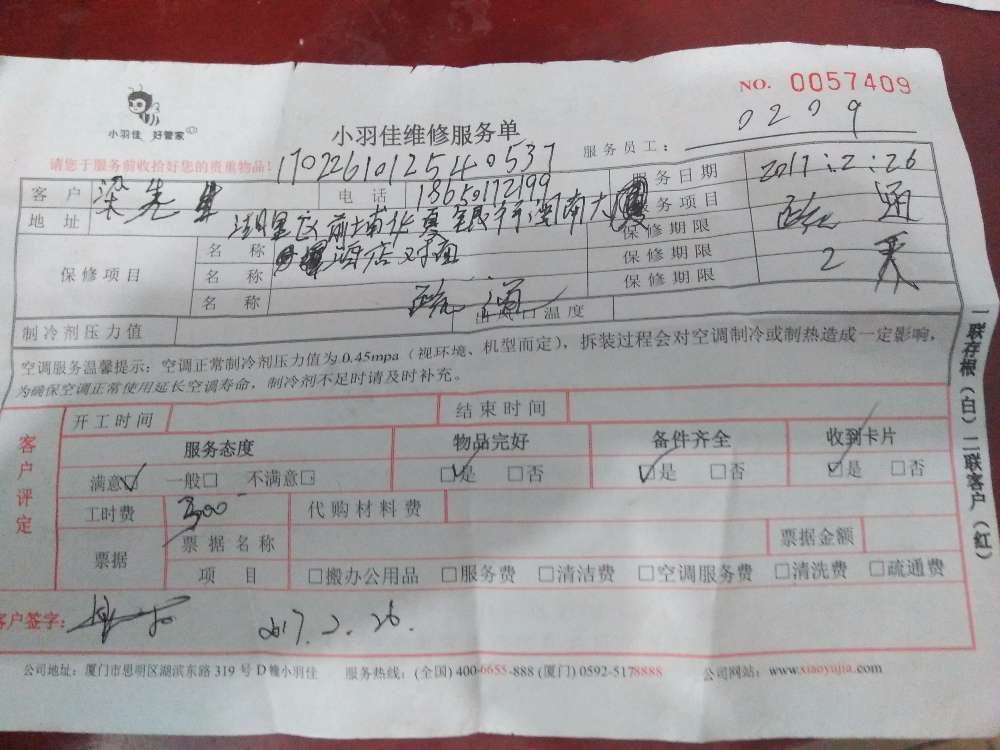 NO. 0057409
小羽佳 好管家
小羽佳维修服务单
服务员工: 0209
请您于服务前收拾好您的贵重物品!
170226101254 0537
客户 梁先生 电话 18650172199 服务日期 2017.2.26
地址 湖里区前埔南华夏银行闽南大 服务项目 疏通
酒店对面
保修项目 名称 保修期限
名称 保修期限 2天
名称 疏通 保修期限
制冷剂压力值 温度
空调服务温馨提示:空调正常制冷剂压力值为0.45mpa(视环境、机型而定),拆装过程会对空调制冷或制热造成一定影响,
为确保空调正常使用延长空调寿命,制冷剂不足时请及时补充。
一联存根(白)二联客户(红)
客户评定
开工时间 结束时间
服务态度 物品完好 备件齐全 收到卡片
满意☑ 一般□ 不满意□ ☑是 □否 ☑是 □否 ☑是 □否
工时费 300 代购材料费
票据 票据名称 票据金额
项目 □搬办公用品 □服务费 □清洁费 □空调服务费 □清洗费 □疏通费
客户签字: 2017.2.26.
公司地址:厦门市思明区湖滨东路319号D幢小羽佳 服务热线:(全国)400-6655-888 (厦门)0592-5178888 公司网站:www.xiaoyujia.com